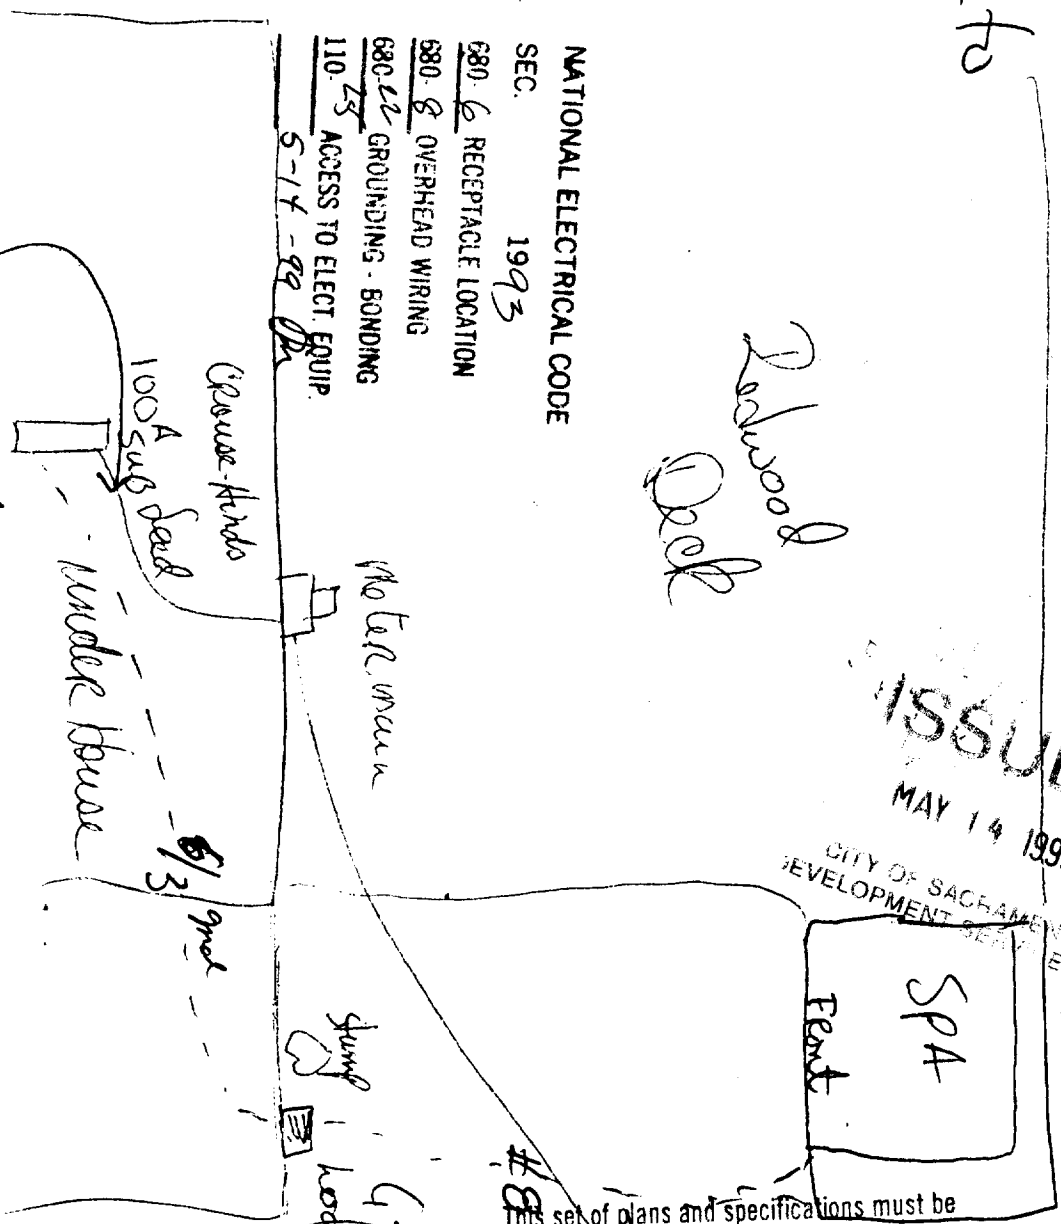 to
NATIONAL ELECTRICAL CODE
SEC. 1993
680-6 RECEPTACLE LOCATION
680-8 OVERHEAD WIRING
680-22 GROUNDING - BONDING
110- ACCESS TO ELECT. EQUIP.
5-14-99
Redwood
Deck
ISSU
MAY 14 199
CITY OF SACRAMEN
DEVELOPMENT SERVICE
SPA
Front
Meter main
Crouse-Hinds
100A
Sub
Under House
/3 gnd
Stump
#8
This set of plans and specifications must be